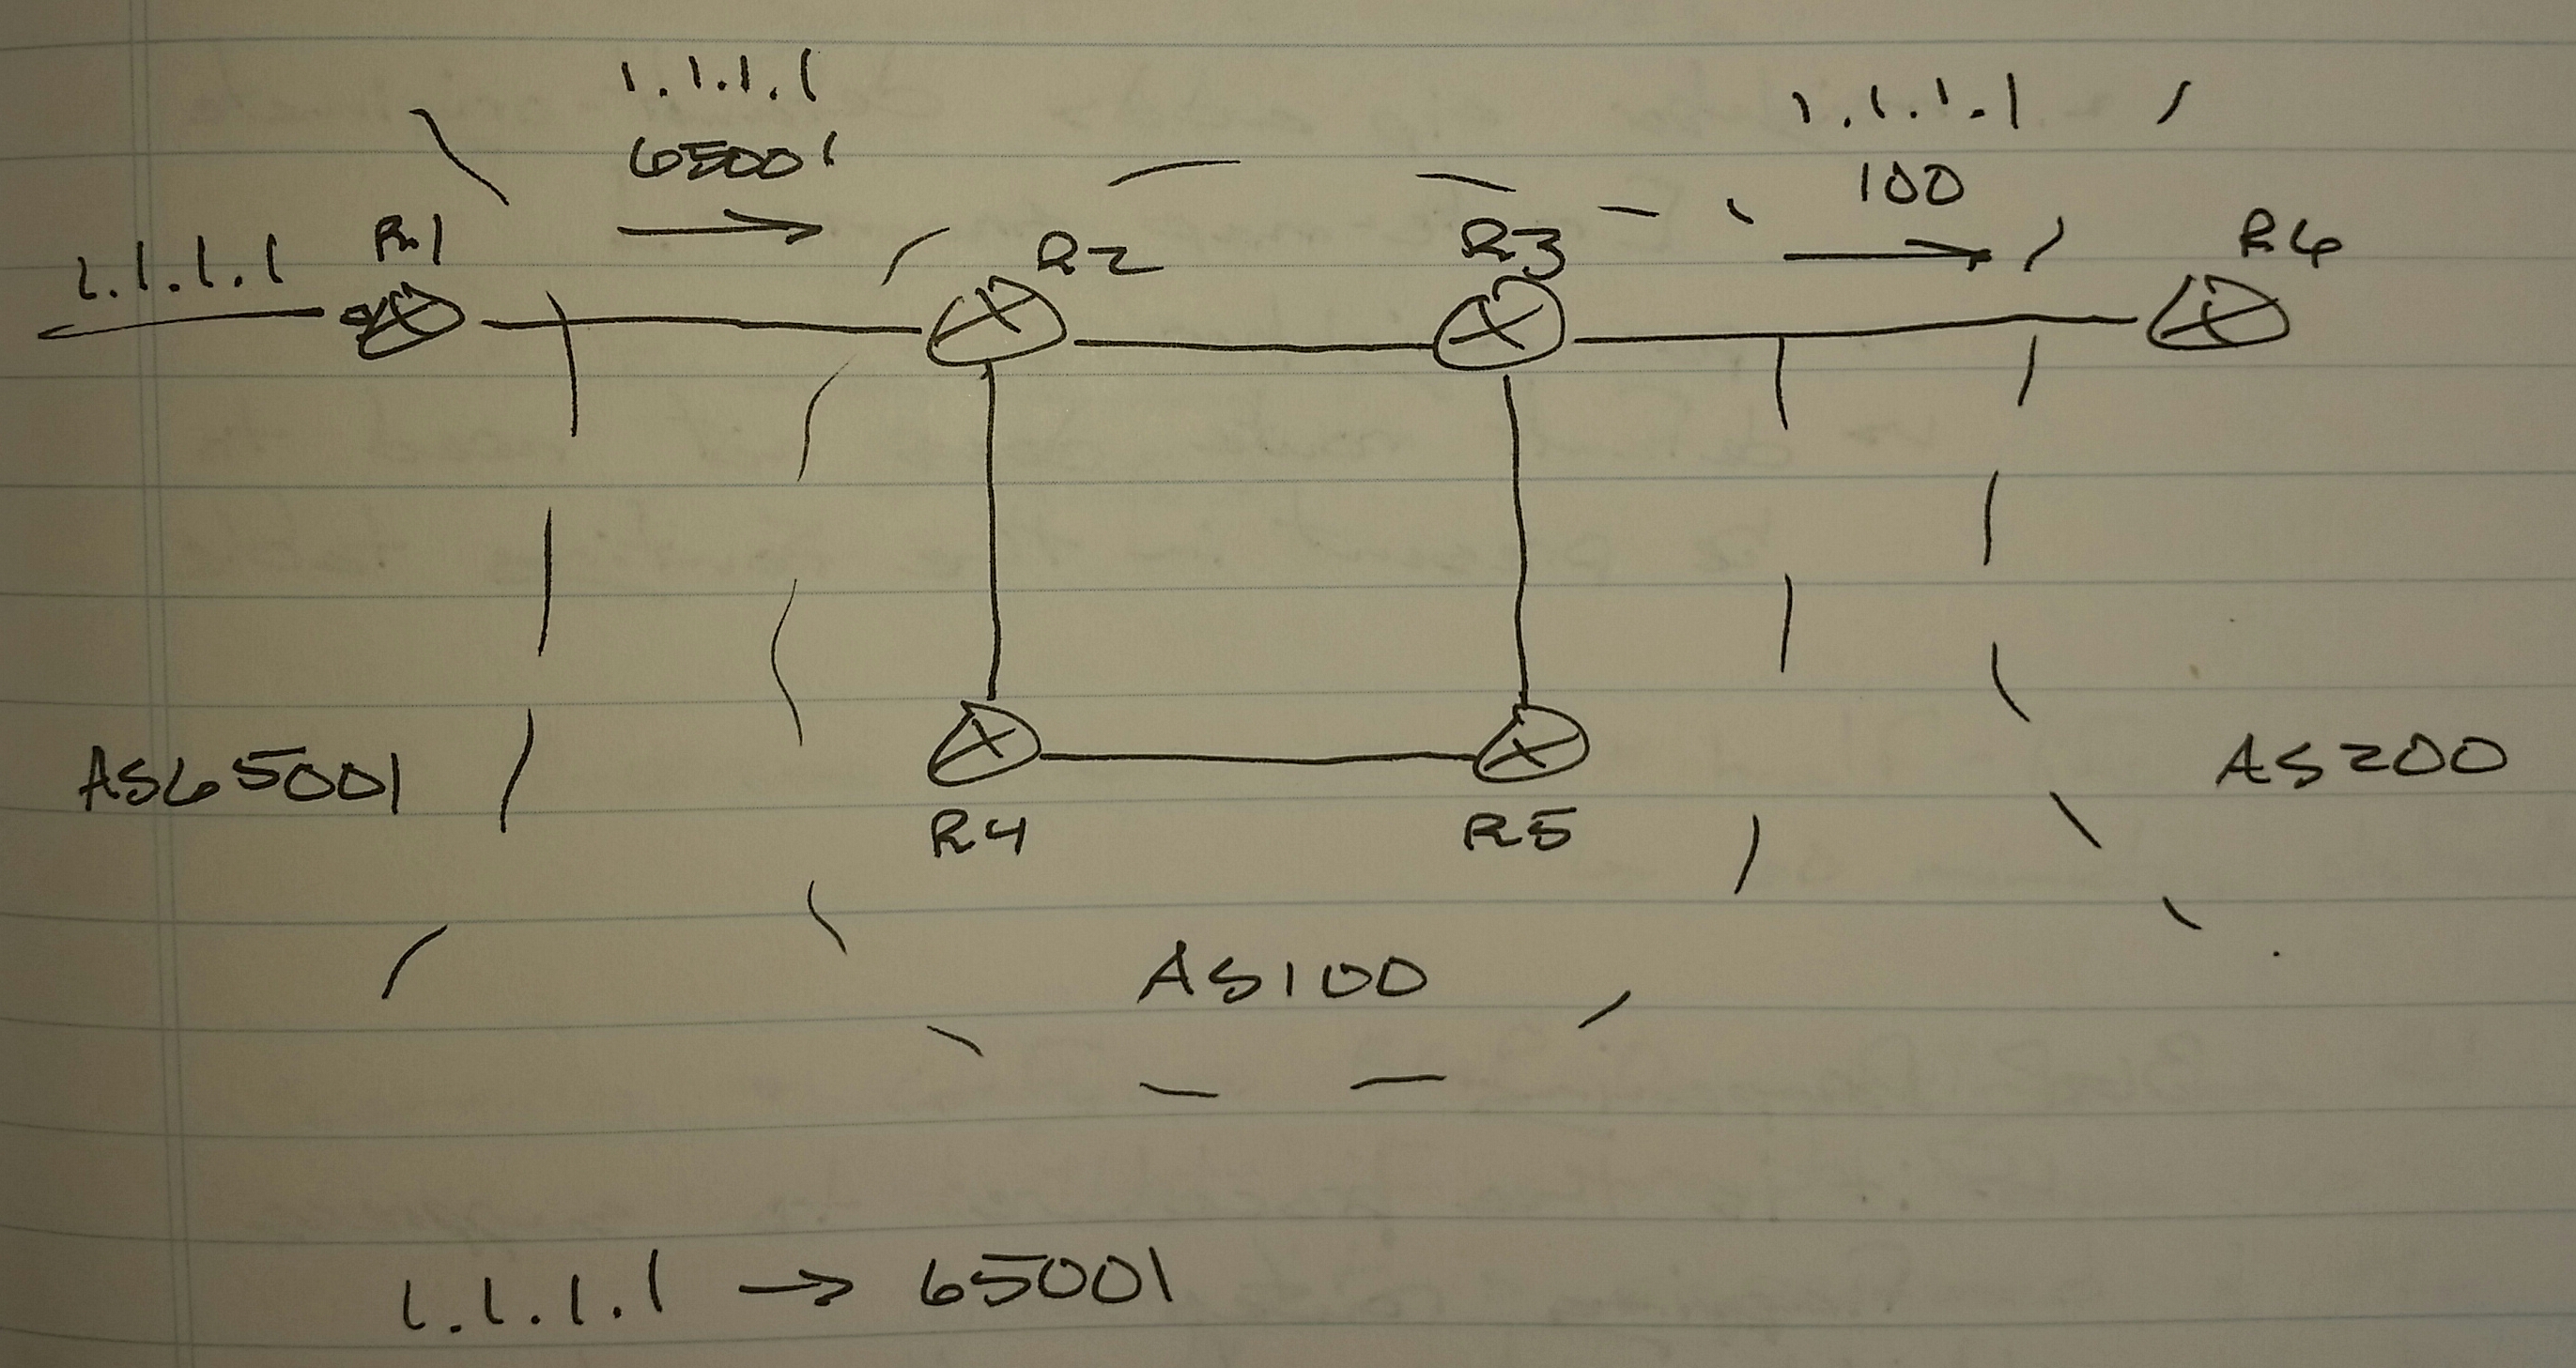 1.1.1.1
65001
1.1.1.1
100
1.1.1.1
R1
R2
R3
R6
AS65001
R4
R5
AS200
AS100
1.1.1.1 → 65001